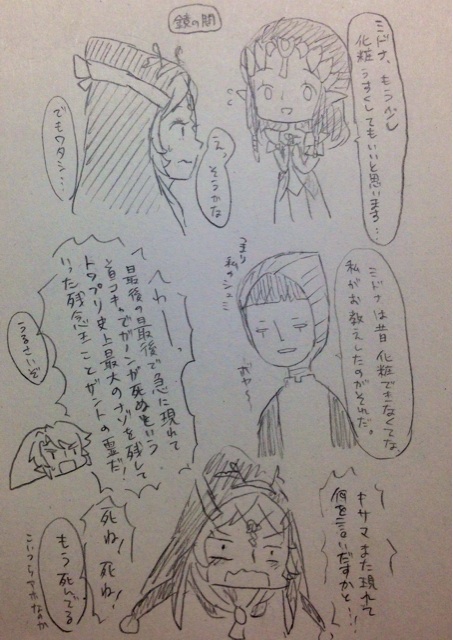 鏡の間
ミドナ、もう少し
化粧うすくしてもいいと思います…
え、そうかな
でもワタシ…
ミドナは昔化粧できなくてな
私がお教えしたのがそれだ。
つまり
私のシュミ
おや〜
わー、
最後の最後で急に現れて
首コキャでガノンが死ぬという
トワプリ史上最大のナゾを残して
いった残念王ことザントの霊だ!
うるさいぞ
キサマまた現れて
何を言いだすかと!!
死ね!死ね!
もう死んでる
こいつらアホなのか